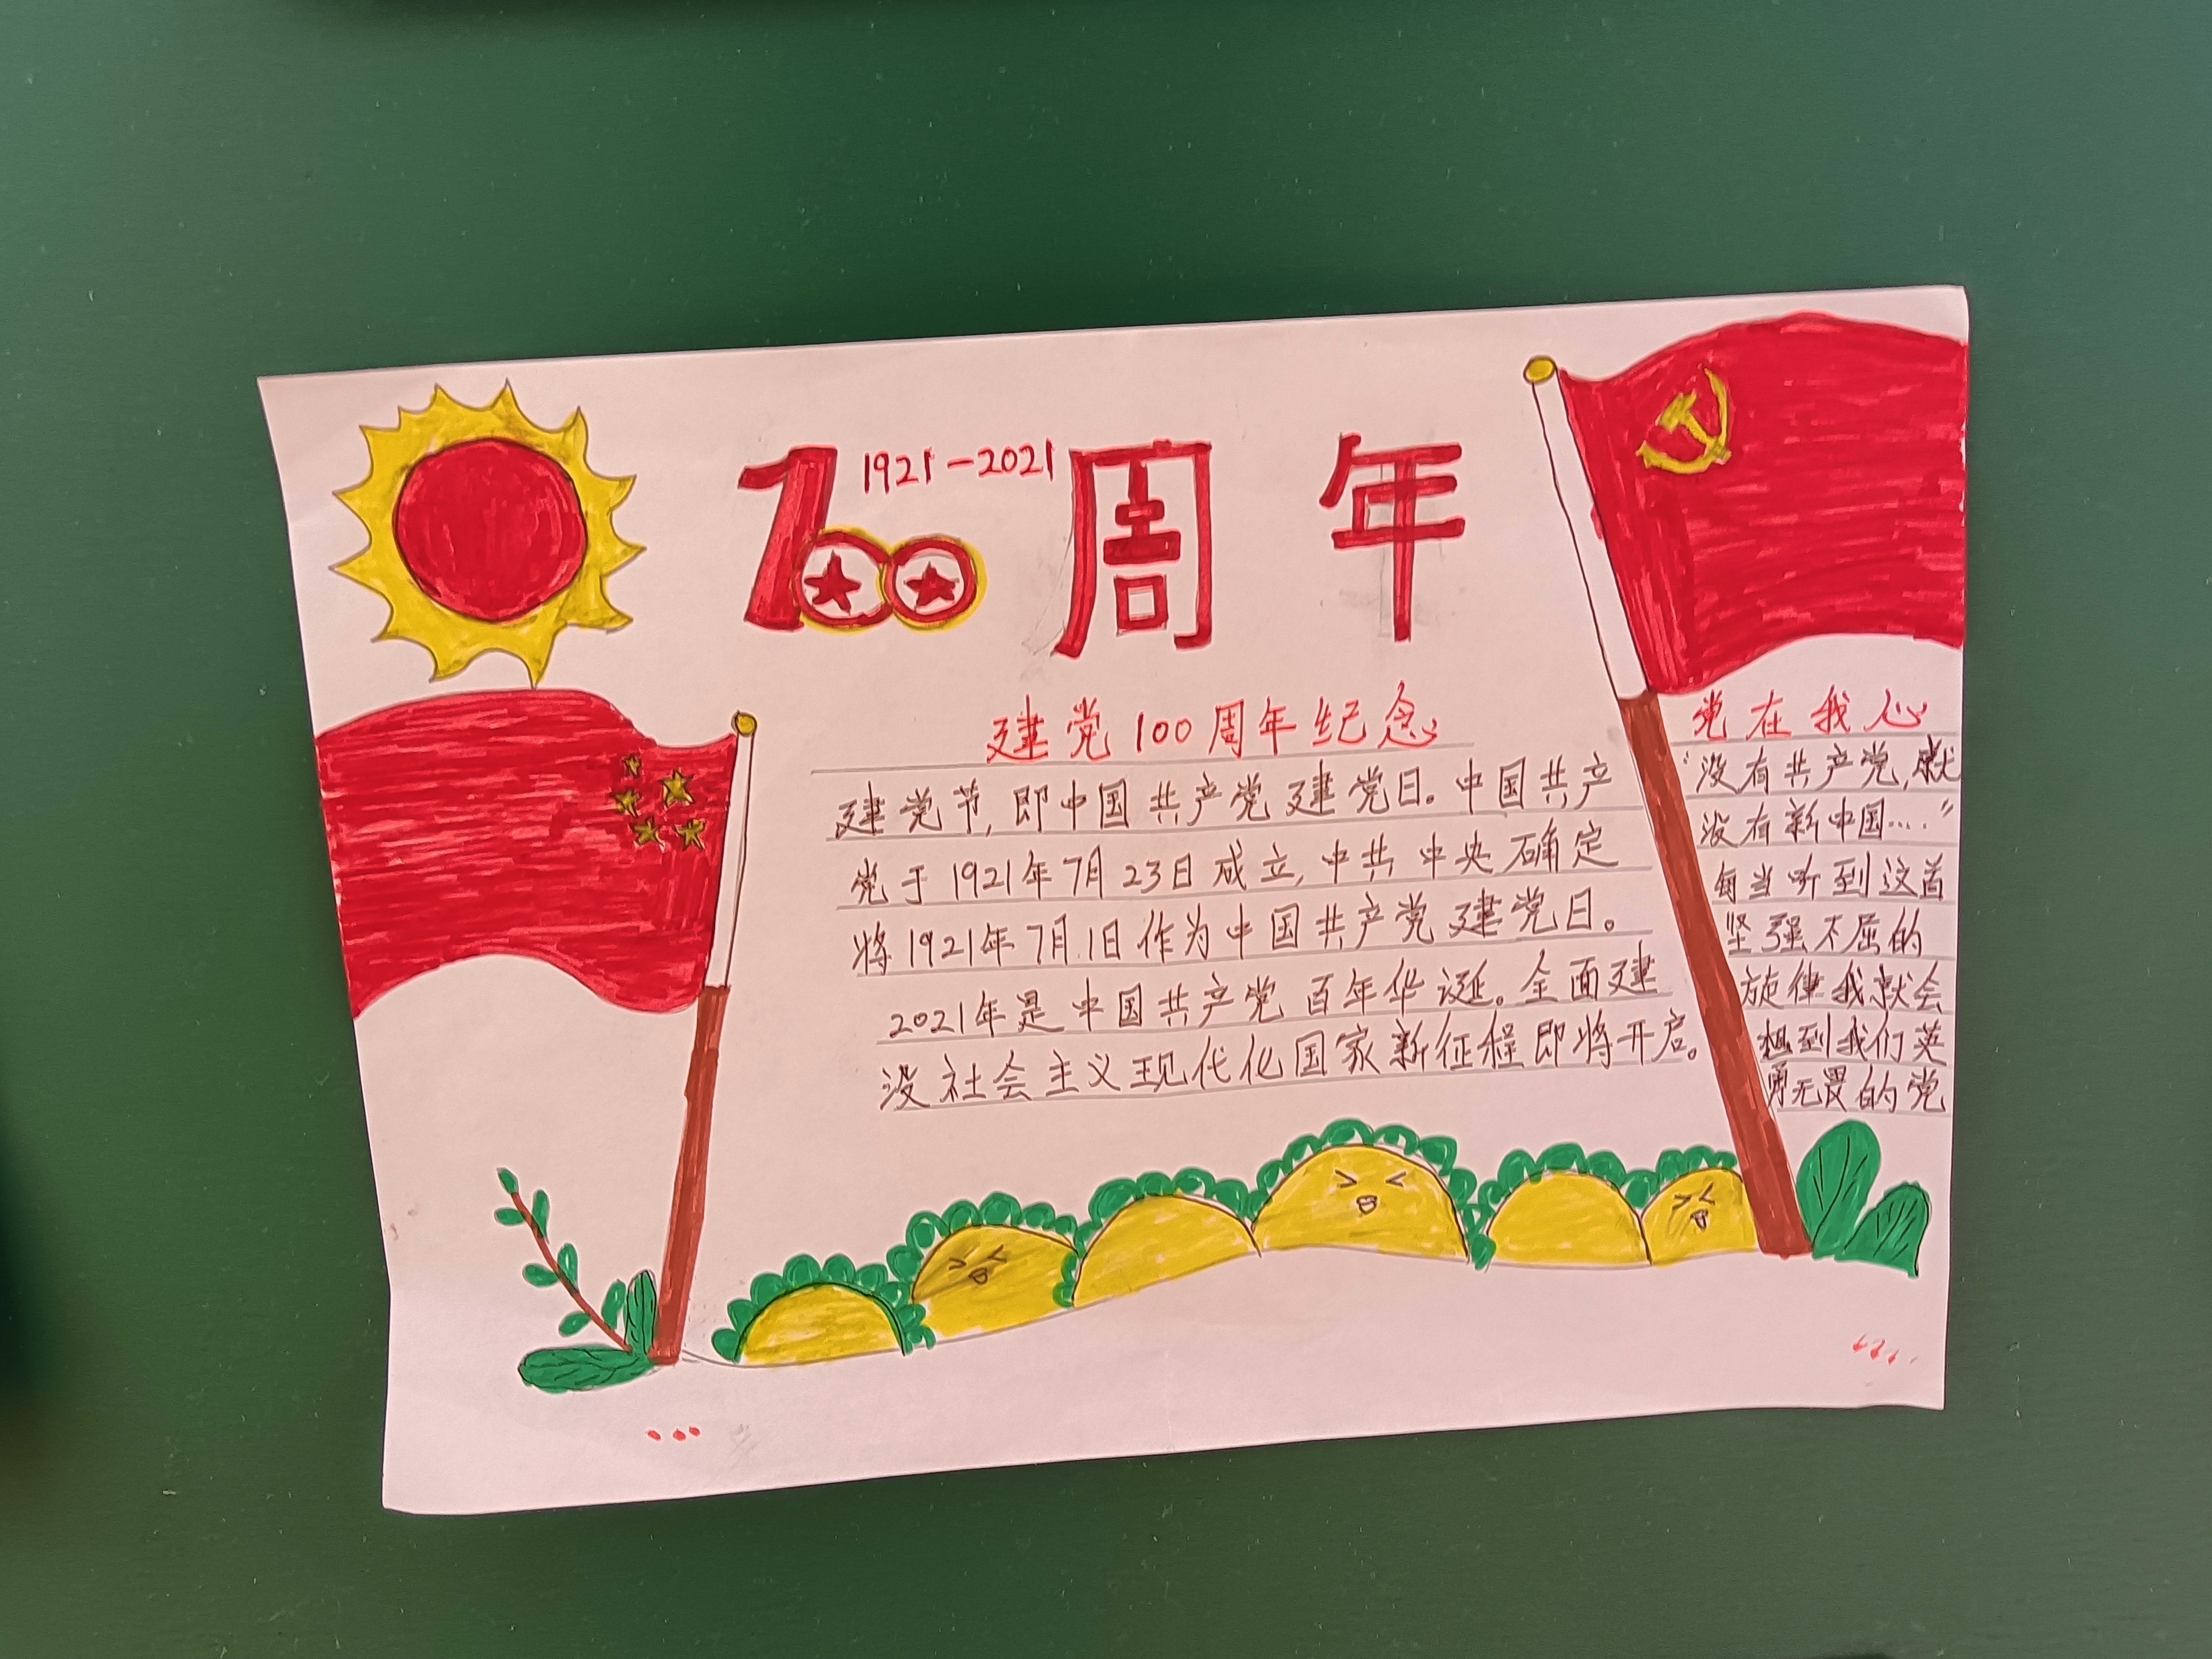 1921-2021
100周年
建党100周年纪念
建党节,即中国共产党建党日。中国共产
党于1921年7月23日成立,中共中央确定
将1921年7月1日作为中国共产党建党日。
2021年是中国共产党百年华诞。全面建
没社会主义现代化国家新征程即将开启。
党在我心
“没有共产党,就
没有新中国...."
每当听到这首
坚强不屈的
旋律我就会
想到我们英
勇无畏的党